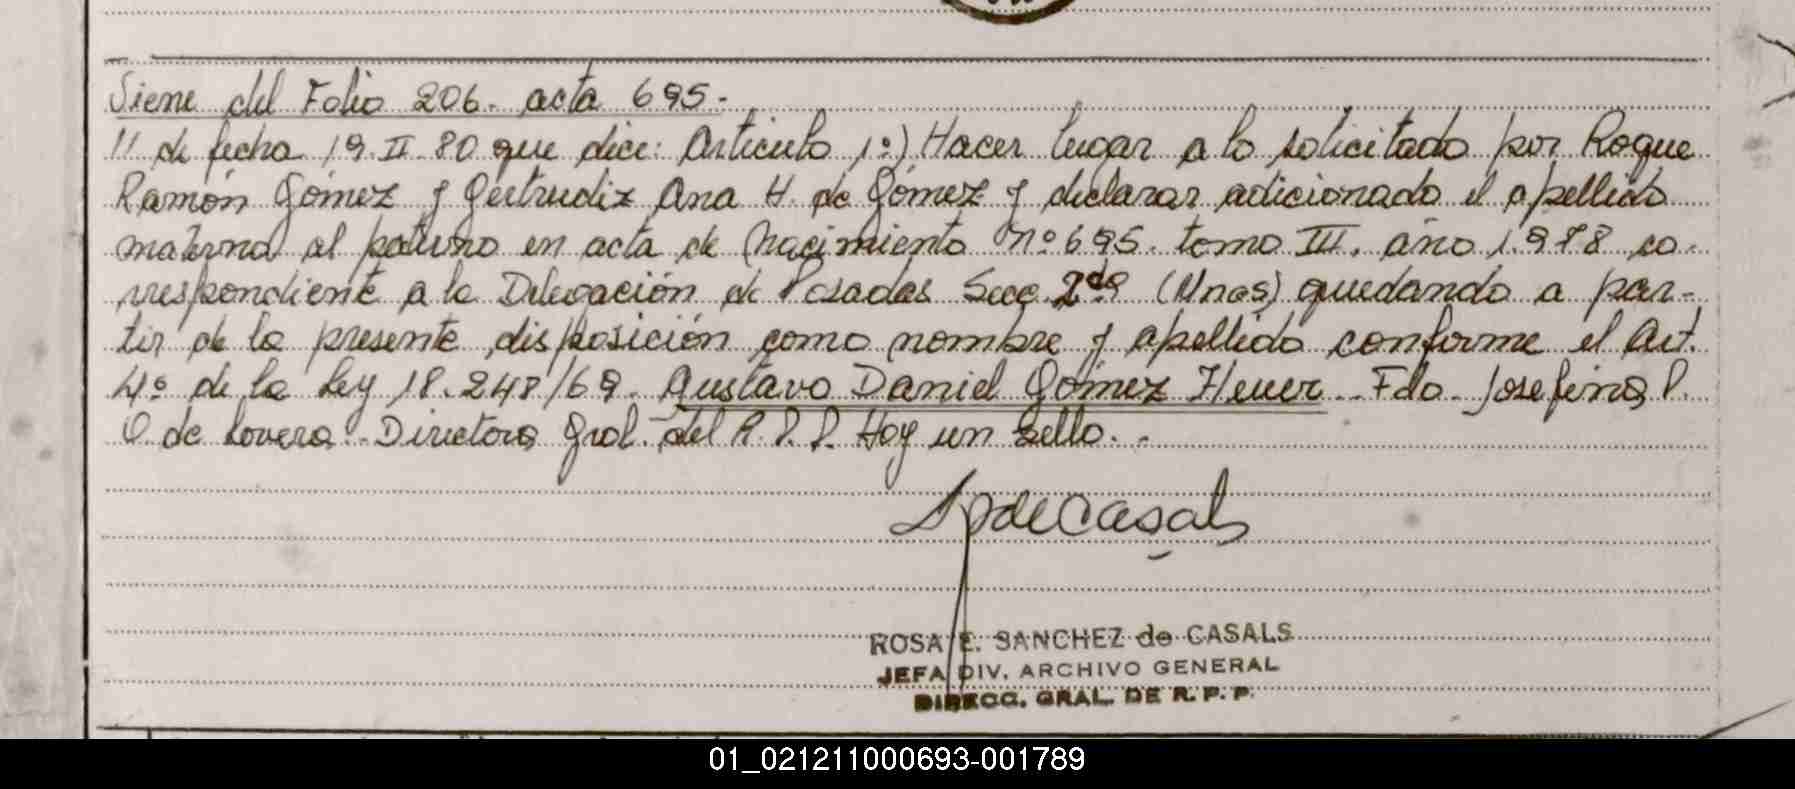 Viene del Folio 206. acta 695.-
11 de fecha 19.II.80 que dice: Articulo 1º) Hacer lugar a lo solicitado por Roque
Ramón Gómez y Gertrudiz Ana H. de Gómez y declarar adicionado el apellido
materno al paterno en acta de Nacimiento nº 695. tomo III. año 1.978 co-
rrespondiente a la Delegación de Posadas Secc. 2da (Mnes) quedando a par-
tir de la presente disposición como nombre y apellido conforme el Art.
4º de la Ley 18.248/69. Gustavo Daniel Gómez Heuer.- Fdo. Josefina P.
O. de Lovera.- Directora Gral. del R.P.P. Hay un sello.-
de Casals
ROSA E. SANCHEZ de CASALS
JEFA DIV. ARCHIVO GENERAL
DIRECC. GRAL. DE R. P. P.
01_021211000693-001789